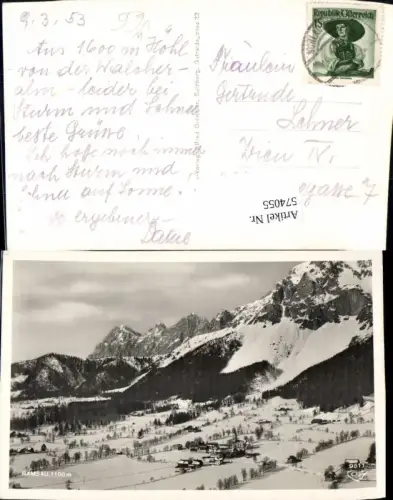 9.3.53
Aus 1600 m Höhe
von der Walcher-
alm - leider bei
Sturm und Schnee
beste Grüße.
Ich hoffe noch immer
nach Sturm und
Schnee auf Sonne.
ergebener
Republik Österreich
Fräulein
Gertrude
Lehner
Wien IV.
gasse 7
Artikel Nr.
574055
RAMSAU 1100 m